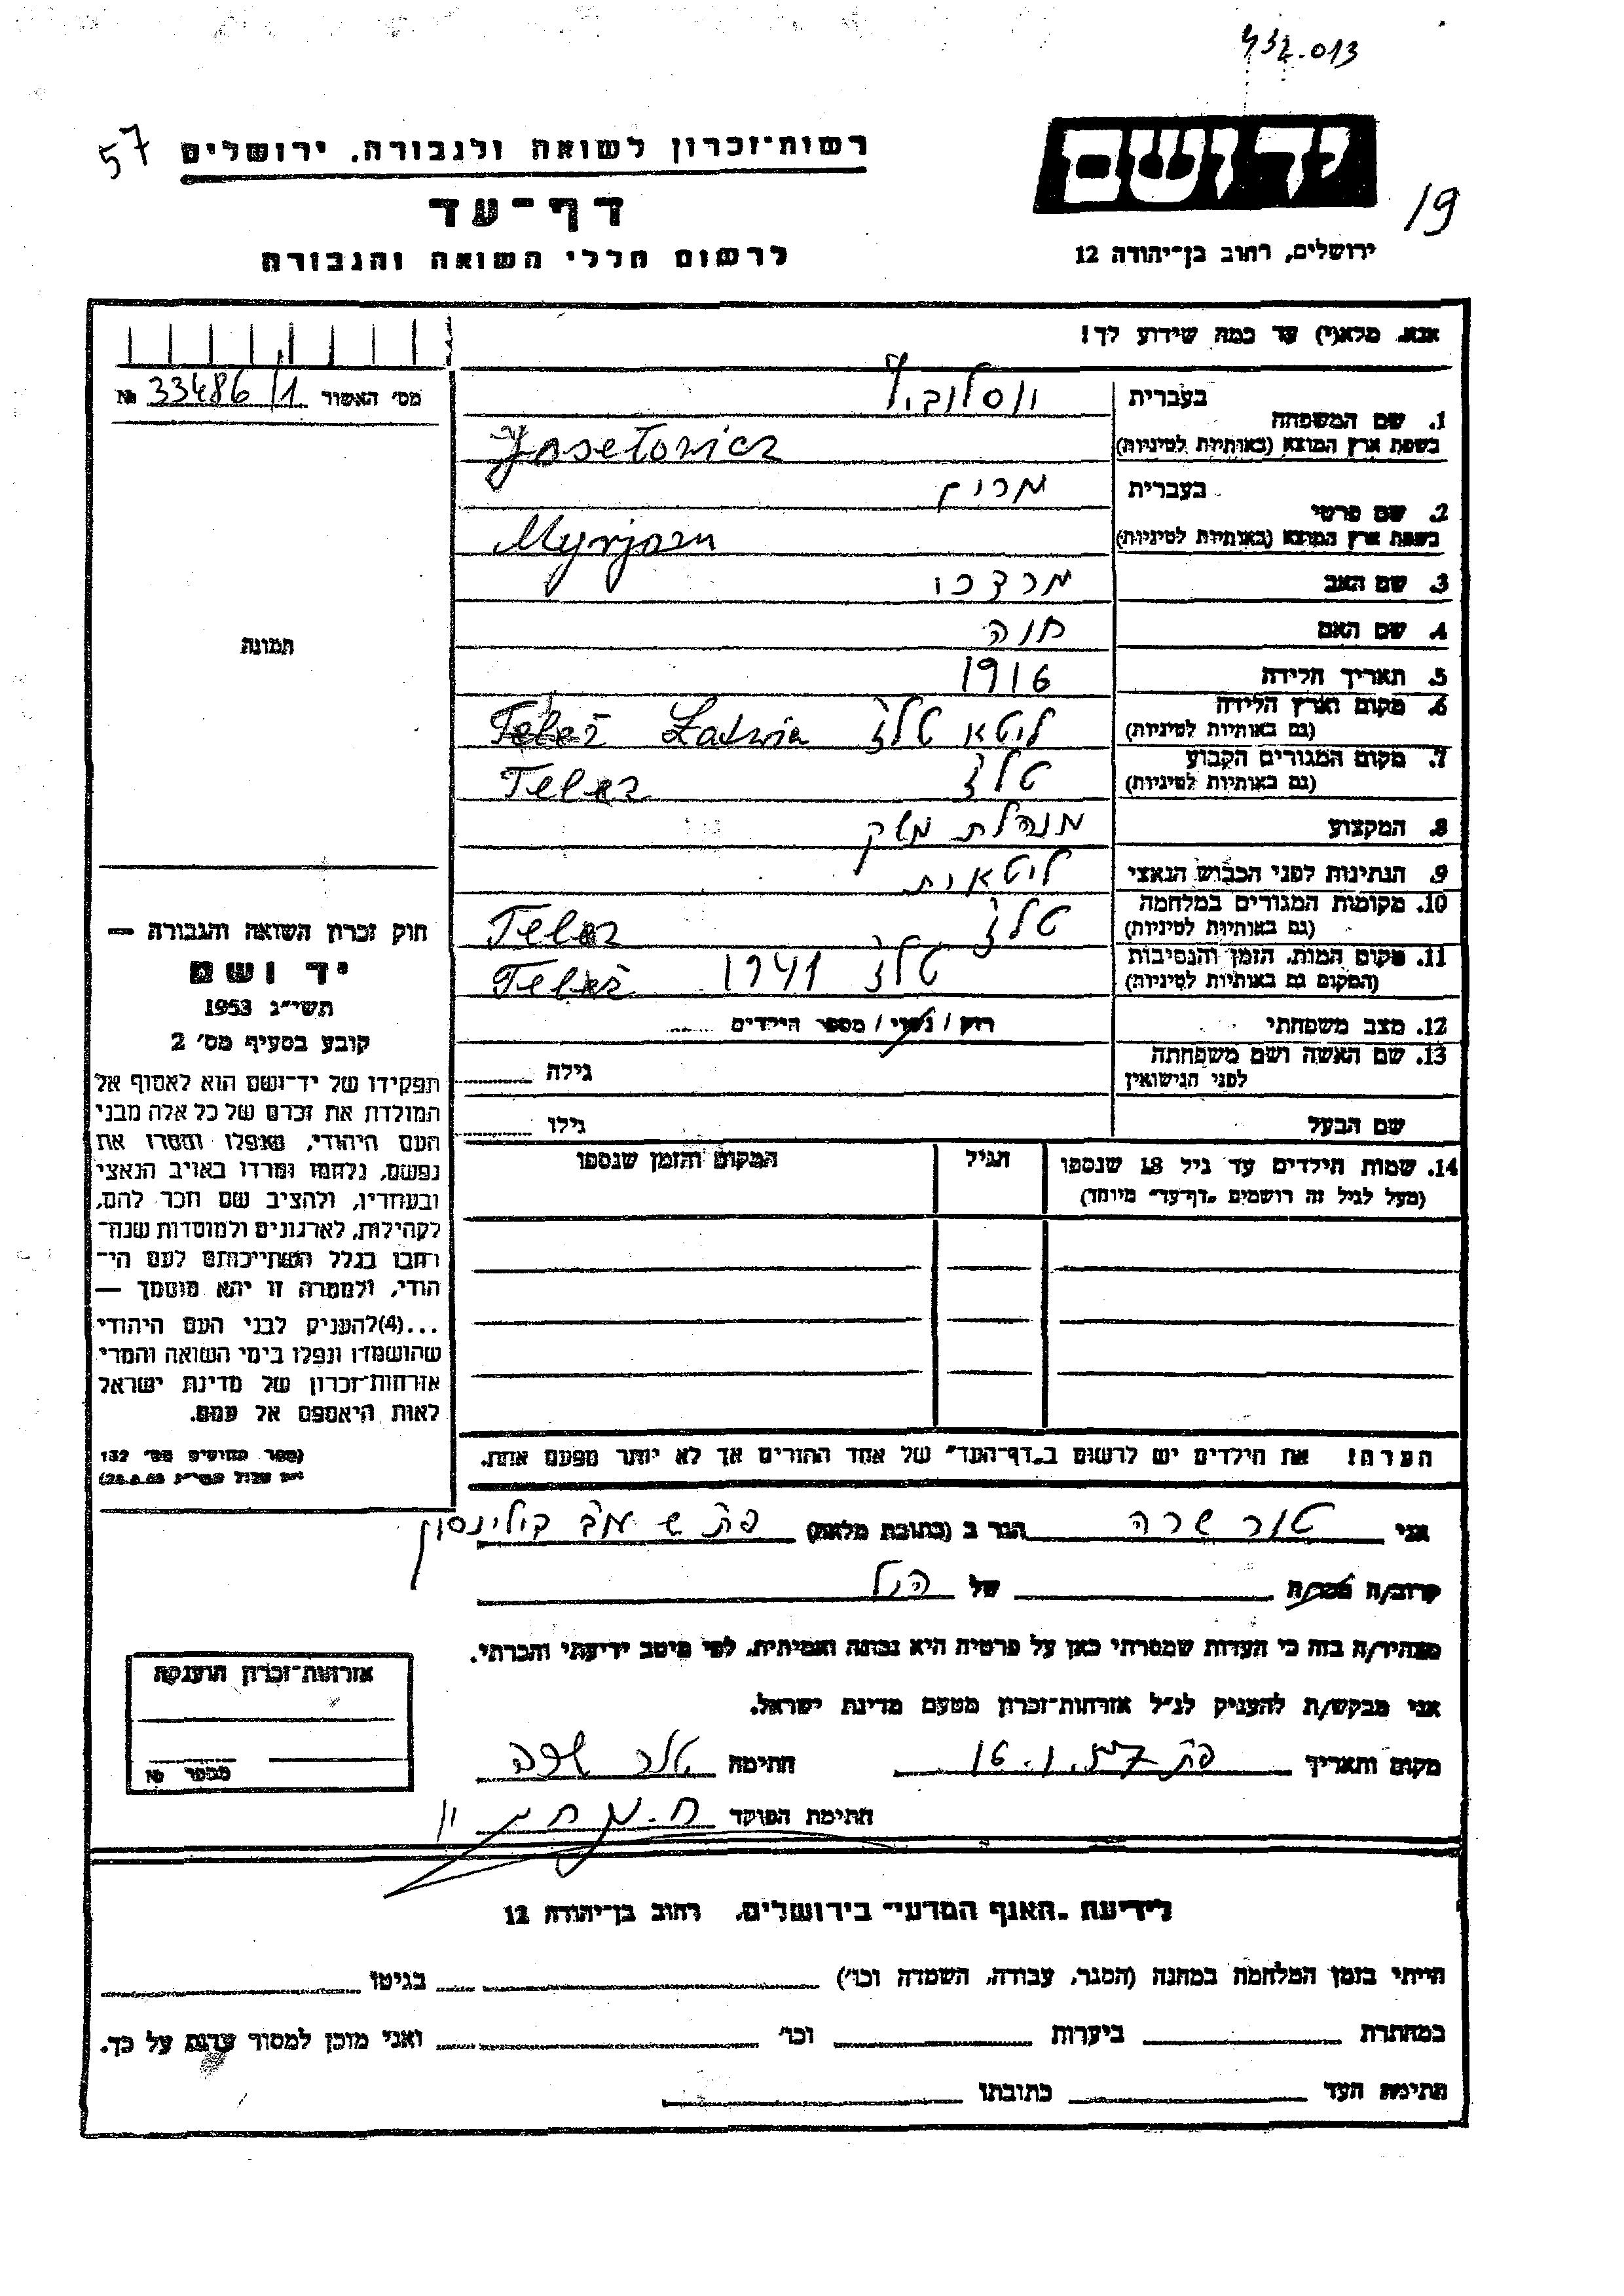 432.013
57
19
יד ושם
רשות־זכרון לשואה ולגבורה, ירושלים
דף־עד
לרשום חללי השואה והגבורה
ירושלים, רחוב בן־יהודה 12
אנא, מלא(י) עד כמה שידוע לך!
מס׳ האשור 33486/1 №
בעברית
1. שם המשפחה
בשפת ארץ המוצא (באותיות לטיניות)
בעברית מרים
2. שם פרטי
בשפת ארץ המוצא (באותיות לטיניות) Myrjam
3. שם האב מרדכי
4. שם האם חנה
5. תאריך הלידה 1916
6. מקום וארץ הלידה
(גם באותיות לטיניות) ליטא טלז
7. מקום המגורים הקבוע
(גם באותיות לטיניות) טלז
8. המקצוע מנהלת משק
9. הנתינות לפני הכבוש הנאצי ליטאית
10. מקומות המגורים במלחמה
(גם באותיות לטיניות) טלז
11. מקום המות, הזמן והנסיבות
(המקום גם באותיות לטיניות) טלז 1941
12. מצב משפחתי רוק / נשוי / מספר הילדים
13. שם האשה ושם משפחתה
לפני הנישואין גילה
שם הבעל גילו
14. שמות הילדים עד גיל 18 שנספו הגיל המקום והזמן שנספו
(מעל לגיל זה רושמים „דף־עד״ מיוחד)
הערה! את הילדים יש לרשום ב„דף־העד״ של אחד ההורים אך לא יותר מפעם אחת.
תמונה
חוק זכרון השואה והגבורה —
יד ושם
תשי״ג 1953
קובע בסעיף מס׳ 2
תפקידו של יד־ושם הוא לאסוף אל
המולדת את זכרם של כל אלה מבני
העם היהודי, שנפלו ומסרו את
נפשם, נלחמו ומרדו באויב הנאצי
ובעוזריו, ולהציב שם וזכר להם,
לקהילות, לארגונים ולמוסדות שנח־
רבו בגלל השתייכותם לעם הי־
הודי, ולמטרה זו יהא מוסמך —
...(4)להעניק לבני העם היהודי
שהושמדו ונפלו בימי השואה והמרי
אזרחות־זכרון של מדינת ישראל
לאות היאספם אל עמם.
(ספר החוקים מס׳ 132
אני שרה הגר ב (כתובת מלאה) בילינסון
קרוב/ה מכר/ה של הנ״ל
מצהיר/ה בזה כי העדות שמסרתי כאן על פרטיה היא נכונה ואמיתית, לפי מיטב ידיעתי והכרתי.
אני מבקש/ת להעניק לנ״ל אזרחות־זכרון מטעם מדינת ישראל.
מקום ותאריך חתימה
חתימת הפוקד
אזרחות־זכרון הוענקה
מספר №
לידיעת „האגף המדעי״ בירושלים, רחוב בן־יהודה 12
הייתי בזמן המלחמה במחנה (הסגר, עבודה, השמדה וכו׳) בגיטו
במחתרת ביערות וכו׳ ואני מוכן למסור עדות על כך.
חתימת העד כתובתו